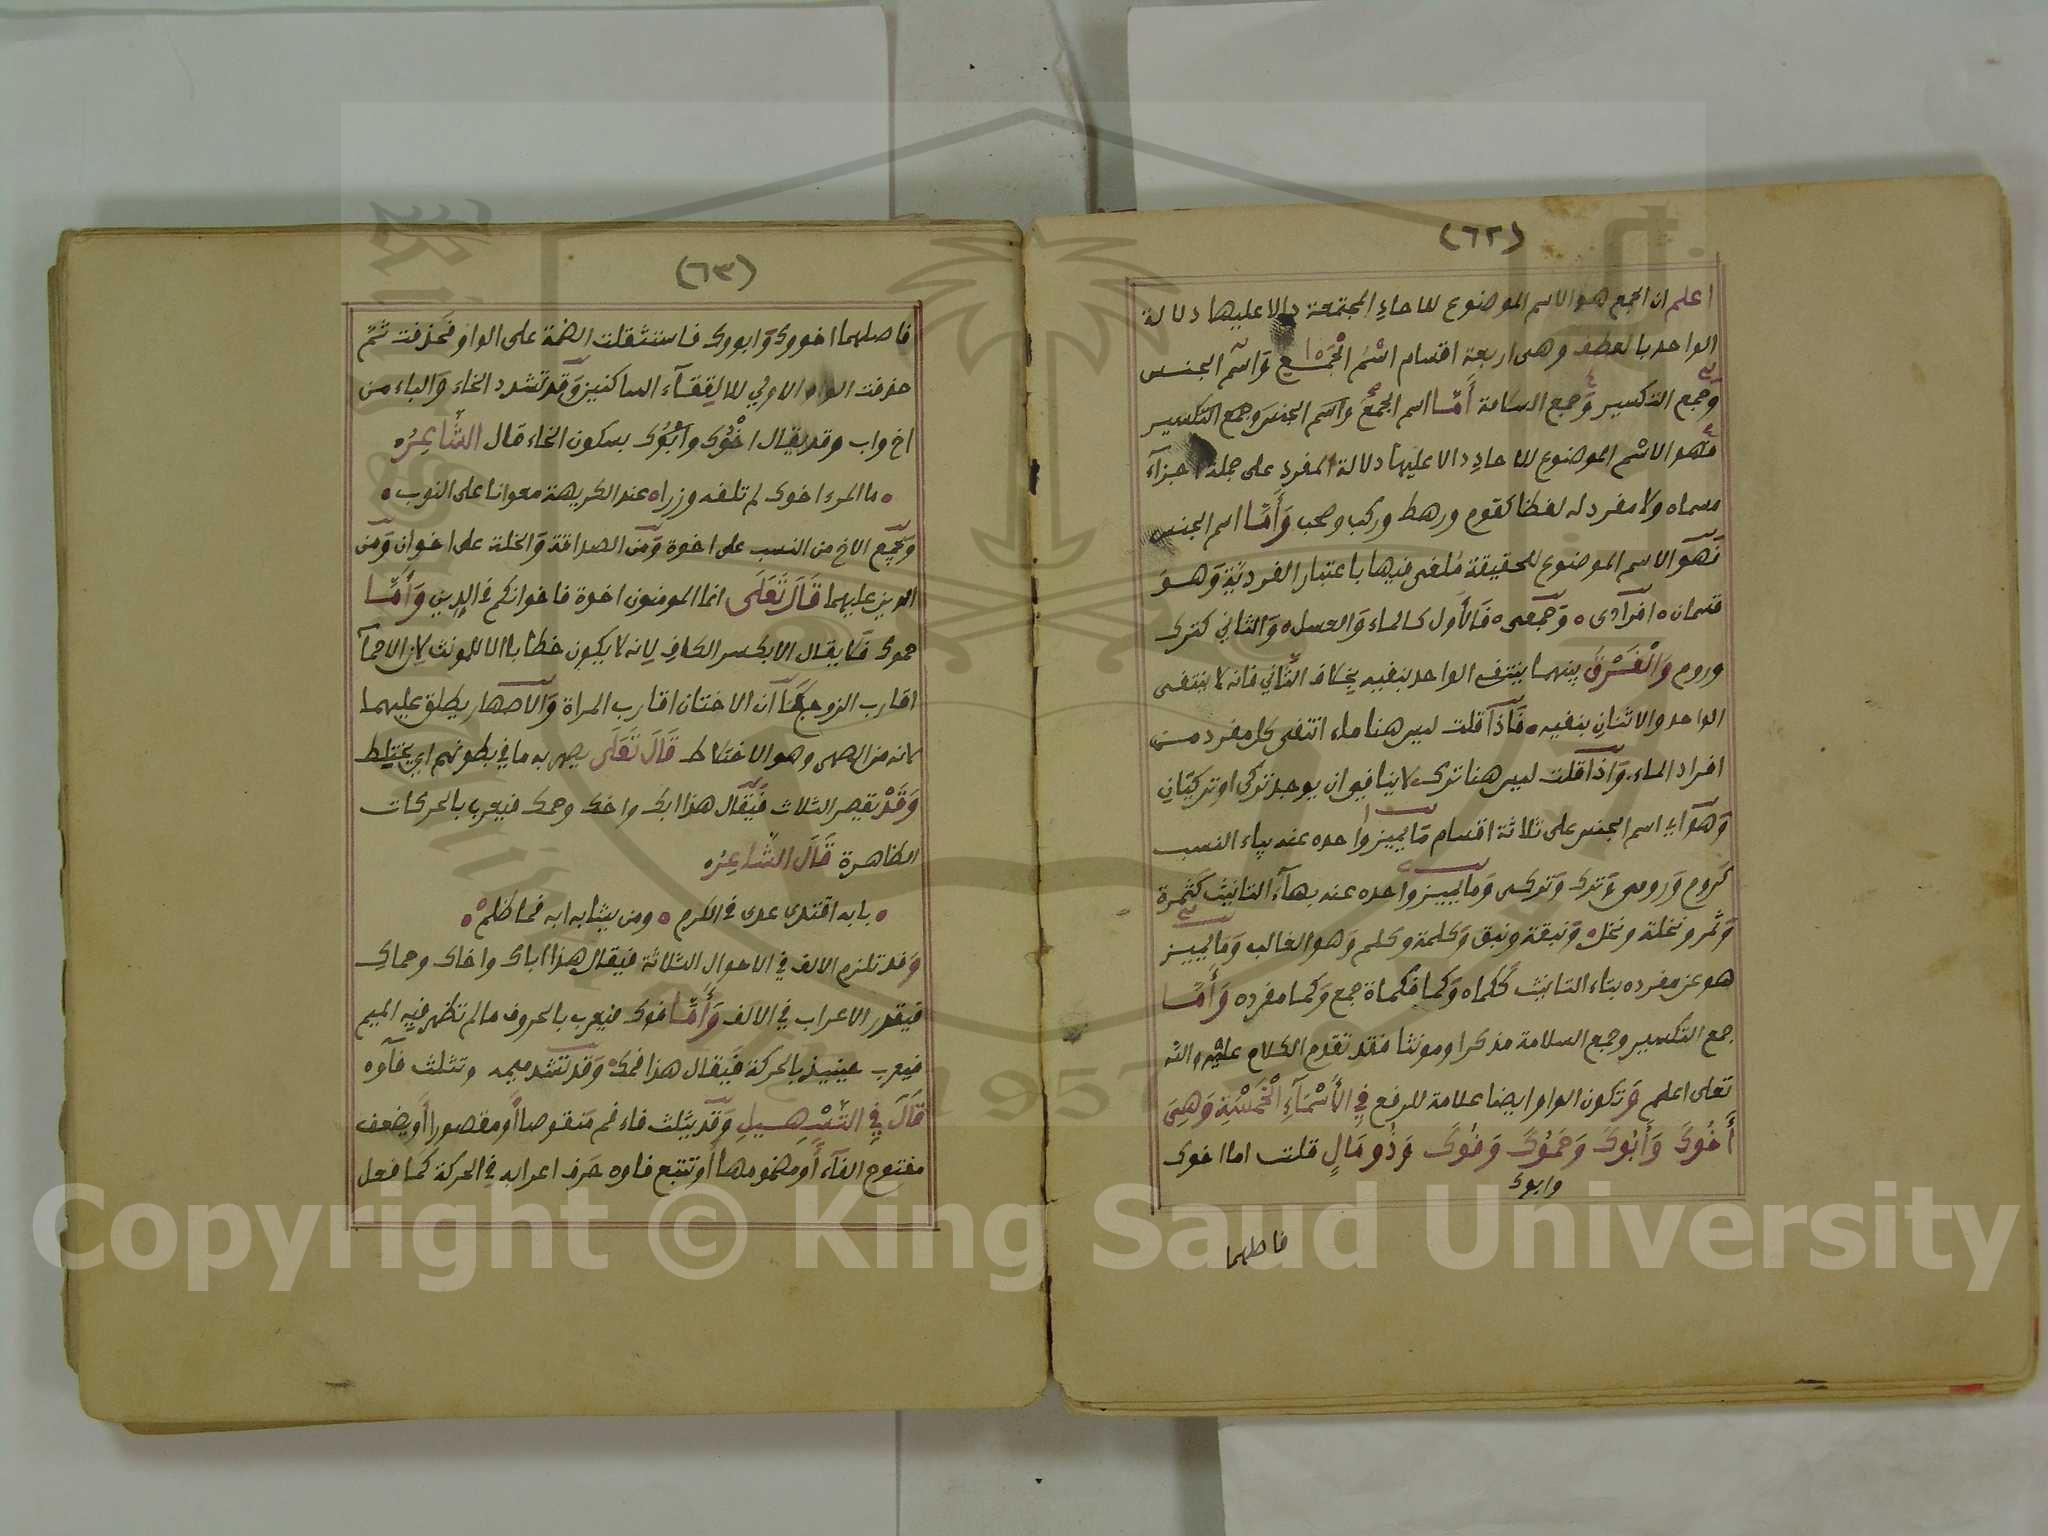 (٦٢)
اعلم ان الجمع هو الاسم الموضوع للاحادِ المجتمعة دالا عليها دلالة
الواحد بالعطف وهى اربعة اقسام اسْمُ الْجَمْع وَاسْم الجنس
وَجمع التكسير وَجمع السلامة أَمَّا اسم الجمع واسم الجنس وجمع التكسير
فهو الاسْم الموضوع للاحادِ دالا عليها دلالة المفرد على جملة اجزآء
مسماه ولا مفرد له لفظا كقوم ورهط وركب وصحب وَأَمَّا اسم الجنس
فَهو الاسم الموضوع للحقيقة مُلغى فيها باعتبار الفردية وَهو
قسمان افرادى وَجمعى فَالأول كالماء وَالعسل وَالثاني كترك
وروم وَالْفَرْقُ بينهما ينتفى الواحد بنفيه بخلاف الثَّاني فانه لا ينتفى
الواحد والاثنان بنفيه فَاذا قلت ليس هنا ماء انتفى كل مفرد من
افراد الماء وَاذا قلت ليس هنا ترك لا ينافي ان يوجد تركي او تركيّان
وَهوَ اي اسم الجنس على ثلاثة اقسام مَا يميز واحده عنه بياء النسب
كَروم وَرومى وَترك وَتركى وَما يميز واحده عنه بهآء التانيث كثمرة
وَثمر ونخلة ونخل وَنبقة ونبق وَكلمة وكلم وَهو الغالب وَما يميز
هو عن مفرده بتاء التانيث ككماه وَكما فكماة جمع وَكما مفرده وَأَمَّا
جمع التكسير وجمع السلامة مذكرا ومونثا فقد تقدم الكلام عليه والله
تعلى اعلم وَتكون الواو ايضا علامة للرفع فِي الأَسْمَآءِ الْخَمْسَةِ وَهِيَ
أَخُوكَ وَأَبُوكَ وَحَمُوكَ وَفُوكَ وَذُو مَالٍ قلت اما اخوك
وابوك
فاصلهما
(٦٣)
فاصلهما اخووك وَابووك فاستثقلت الضمة على الواو فحذفت ثمَّ
حذفت الواو الاولي لالتقآء الساكنين وَقد تشدد الخاء وَالباء من
اخ واب وقد يقال اخْوُك وأبُوُّك بسكون الخاء قال الشَّاعِرُ
ما المرء اخوك لم تلفه وزراه عند الكريهة معوانا على النوب
وَيجمع الاخ من النسب على اخوة وَمن الصداقة وَالخلة على اخوان وَمن
الدين عليهما قَالَ تَعَلَى انما المومنون اخوة فاخوانكم في الدين وَأَمَّا
حموك فَلا يقال الا بكسر الكاف لانه لا يكون خطابا الا للمونث لان الاحمآ
اقارب الزوج كَما أن الاختان اقارب المراة وَالاصهار يطلق عليهما
لانه من الصهر وهو الاختلاط قَالَ تَعَلَى يصهر به ما في بطونهم اي يختلط
وَقَدْ يقصر الثلاث فَيقال هذا ابك واخك وحمك فيعرب بالحركات
الظاهرة قَالَ الشَّاعِرُ
بابه اقتدى عدى في الكرم ومن يشابه ابه فما ظلم
وَقد تلزم الالف في الاحوال الثلاثة فيقال هذا اباك واخاك وحماك
فيقدر الاعراب في الالف وَأَمَّا فوك فيعرب بالحروف ما لم تظهر فيه الميم
فيعرب حينيذ بالحركة فَيقال هذا فمك وَقد تشدد ميمه وتثلث فآوه
قَالَ فِي التَّسْهِيلِ وَقد يثلث فاء فم مَنقوصا أَو مقصورا أَو يضعف
مفتوح الفآء أَو مضمومها أَو تتبع فاوه حَرف اعرابه في الحركة كما فعل
Copyright © King Saud University
1957